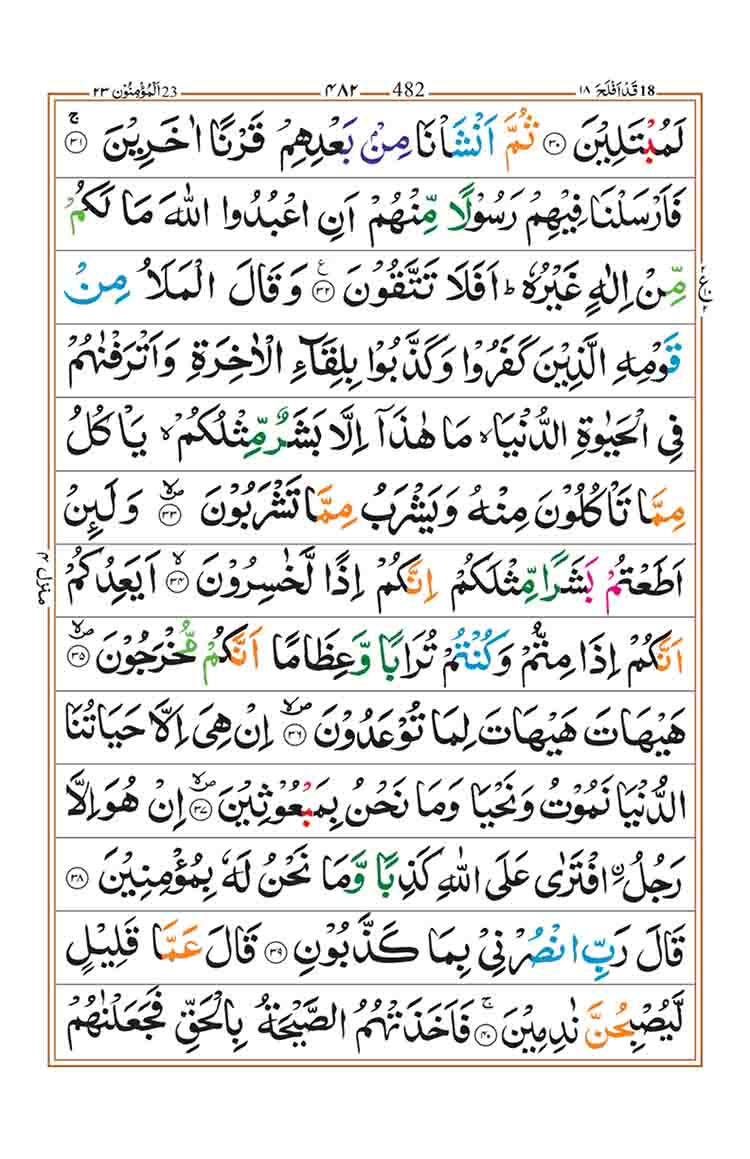 18 قَدْ اَفْلَحَ ۱۸ 482 ۴۸۲ 23 اَلْمُؤْمِنُوْن ۲۳
لَمُبْتَلِيْنَ ۳۰ ثُمَّ اَنْشَاْنَا مِنْۢ بَعْدِهِمْ قَرْنًا اٰخَرِيْنَ ۚ ۳۱
فَاَرْسَلْنَا فِيْهِمْ رَسُوْلًا مِّنْهُمْ اَنِ اعْبُدُوا اللّٰهَ مَا لَكُمْ
مِّنْ اِلٰهٍ غَيْرُهٗ ؕ اَفَلَا تَتَّقُوْنَ ۳۲ ع وَقَالَ الْمَلَاُ مِنْ
قَوْمِهِ الَّذِيْنَ كَفَرُوْا وَكَذَّبُوْا بِلِقَآءِ الْاٰخِرَةِ وَاَتْرَفْنٰهُمْ
فِى الْحَيٰوةِ الدُّنْيَا ۙ مَا هٰذَآ اِلَّا بَشَرٌ مِّثْلُكُمْ ۙ يَاْكُلُ
مِمَّا تَاْكُلُوْنَ مِنْهُ وَيَشْرَبُ مِمَّا تَشْرَبُوْنَ ۙ ۳۳ وَلَئِنْ
اَطَعْتُمْ بَشَرًا مِّثْلَكُمْ اِنَّكُمْ اِذًا لَّخٰسِرُوْنَ ۙ ۳۴ اَيَعِدُكُمْ
منزل ۴
اَنَّكُمْ اِذَا مِتُّمْ وَكُنْتُمْ تُرَابًا وَّعِظَامًا اَنَّكُمْ مُّخْرَجُوْنَ ۙ ۳۵
هَيْهَاتَ هَيْهَاتَ لِمَا تُوْعَدُوْنَ ۙ ۳۶ اِنْ هِىَ اِلَّا حَيَاتُنَا
الدُّنْيَا نَمُوْتُ وَنَحْيَا وَمَا نَحْنُ بِمَبْعُوْثِيْنَ ۙ ۳۷ اِنْ هُوَ اِلَّا
رَجُلُ ۨ افْتَرٰى عَلَى اللّٰهِ كَذِبًا وَّمَا نَحْنُ لَهٗ بِمُؤْمِنِيْنَ ۳۸
قَالَ رَبِّ انْصُرْنِىْ بِمَا كَذَّبُوْنِ ۳۹ قَالَ عَمَّا قَلِيْلٍ
لَّيُصْبِحُنَّ نٰدِمِيْنَ ۚ ۴۰ فَاَخَذَتْهُمُ الصَّيْحَةُ بِالْحَقِّ فَجَعَلْنٰهُمْ